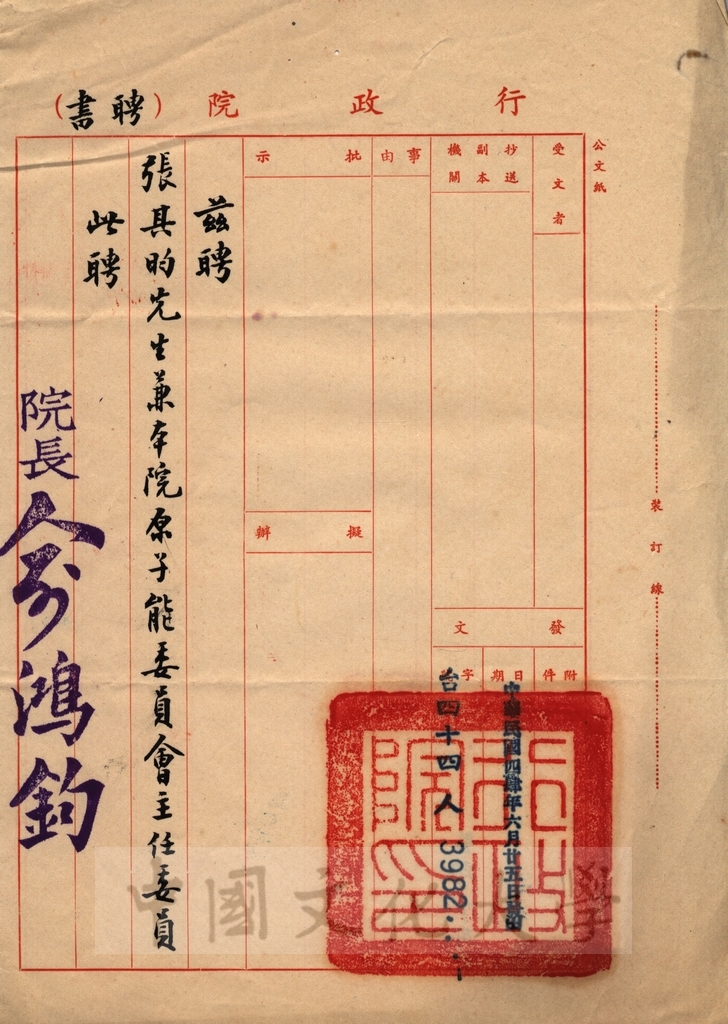 行政院（聘書）
公文紙
受文者
抄送
副本
機關
事由
批示
擬辦
發文
附件
日期
字
中華民國四肆年六月廿五日
台四十四人3982
裝訂線
茲聘
張其昀先生兼本院原子能委員會主任委員
此聘
院長俞鴻鈞
行政院印
中國文化大學